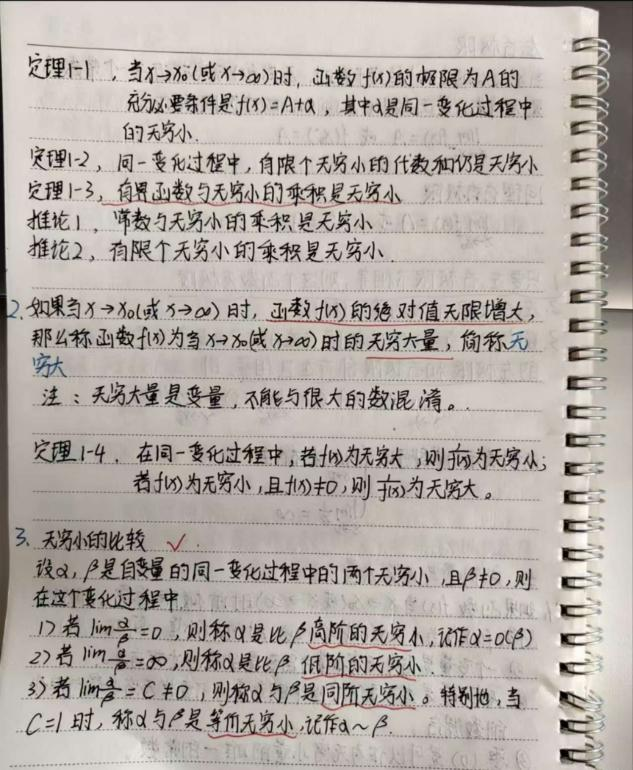 定理1-1，当x→x₀(或x→∞)时，函数f(x)的极限为A的
充分必要条件是f(x)=A+α，其中α是同一变化过程中
的无穷小.
定理1-2，同一变化过程中，有限个无穷小的代数和仍是无穷小
定理1-3，有界函数与无穷小的乘积是无穷小
推论1，常数与无穷小的乘积是无穷小
推论2，有限个无穷小的乘积是无穷小.
2.如果当x→x₀(或x→∞)时，函数f(x)的绝对值无限增大，
那么称函数f(x)为当x→x₀(或x→∞)时的无穷大量，简称无
穷大
注：无穷大量是变量，不能与很大的数混淆。
定理1-4.在同一变化过程中，若f(x)为无穷大，则1/f(x)为无穷小；
若f(x)为无穷小，且f(x)≠0，则1/f(x)为无穷大。
3.无穷小的比较 ✓
设α，β是自变量的同一变化过程中的两个无穷小，且β≠0，则
在这个变化过程中
1)若lim α/β=0，则称α是比β高阶的无穷小，记作α=o(β)
2)若lim α/β=∞，则称α是比β低阶的无穷小.
3)若lim α/β=C≠0，则称α与β是同阶无穷小。特别地，当
C=1时，称α与β是等价无穷小，记作α~β.